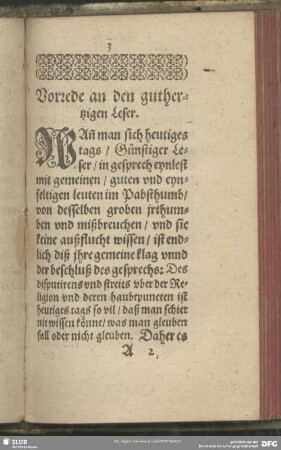 3
Vorrede an den guther-
tzigen Leser.
WAñ man sich heutiges
tags / Günstiger Le-
ser / in gesprech eynlest
mit gemeinen / guten vnd eyn-
feltigen leuten im Pabsthumb /
von desselben groben jrthum-
ben vnd mißbreuchen / vnd sie
keine außflucht wissen / ist end-
lich diß jhre gemeine klag vnnd
der beschluß des gesprechs: Des
disputirens vnd streits vber der Re-
ligion vnd deren haubtpuncten ist
heutiges tags so vil / daß man schier
nit wissen könne / was man gleuben
soll oder nicht gleuben. Daher es
A 2
SLUB
DFG